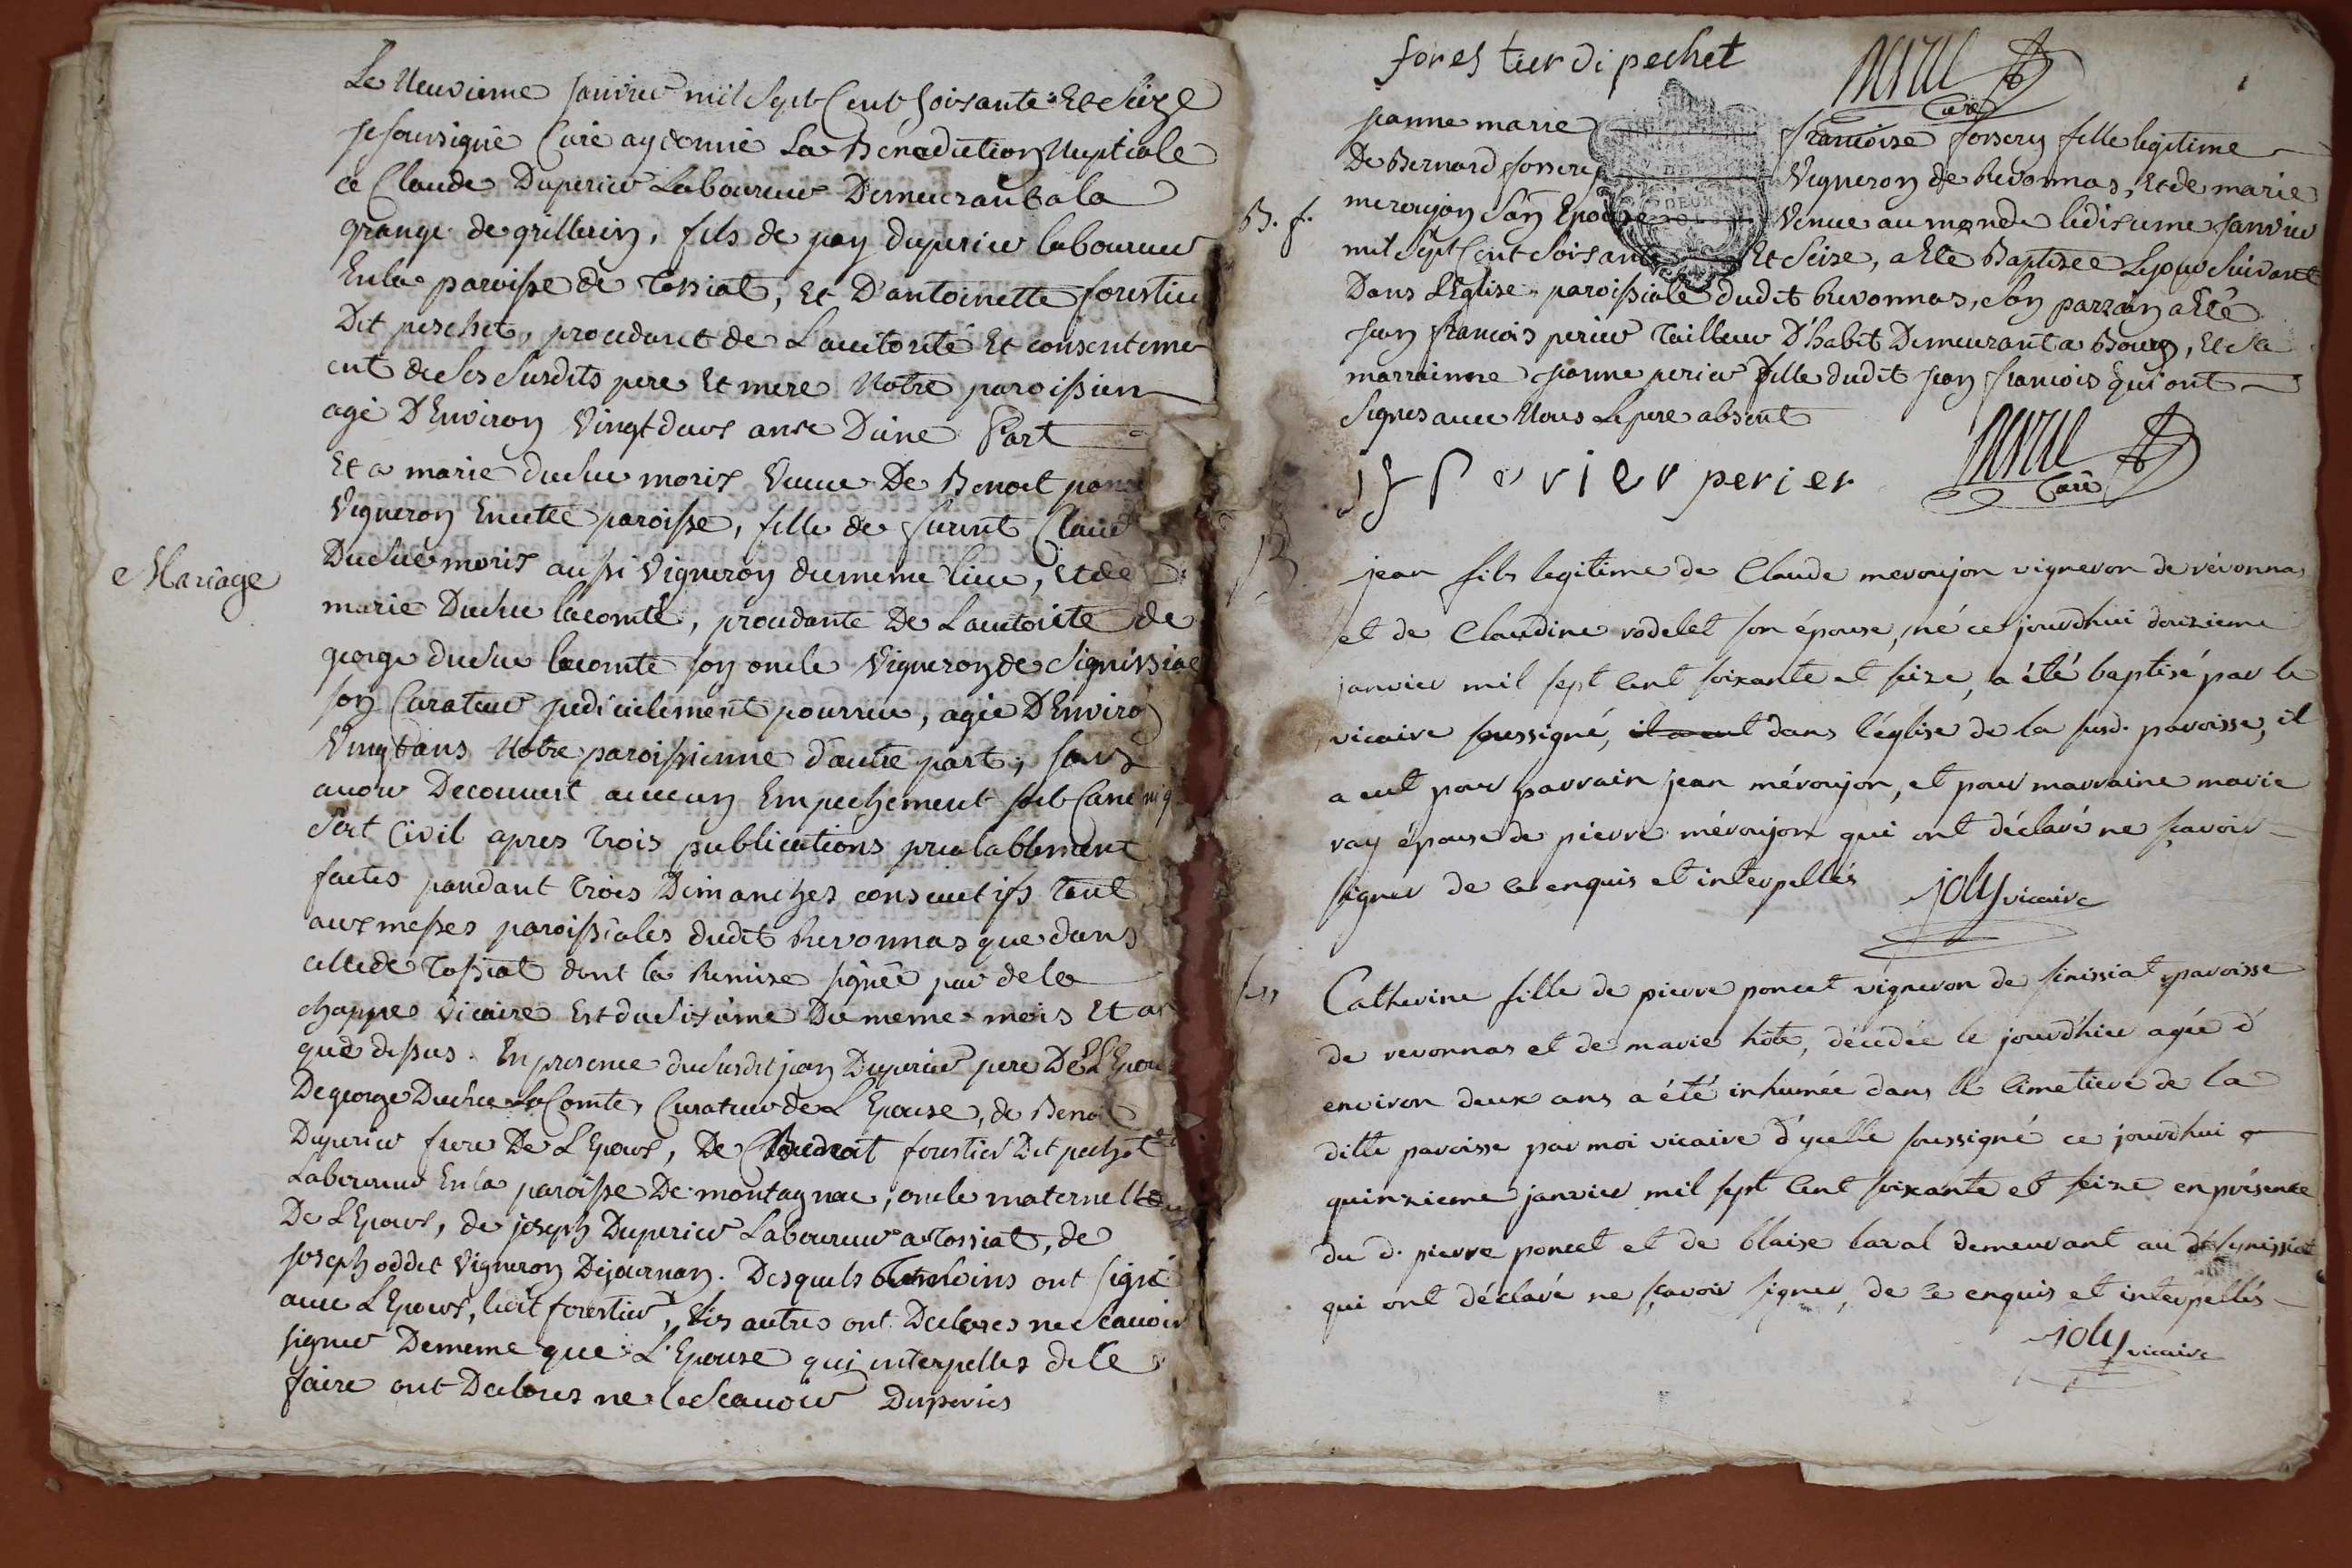 Le Neuvieme janvier mil Sept Cent Soisante Et Seize
je soussigné Curé ay donné La Bénédiction Nuptiale
a Claude Duperier Laboureur Demeurant a la
grange de grillerin, fils de jean duperier laboureur
En la paroisse de Tossiat, Et D'antoinette forestier
Dit peschet, procedant de L'auttorité Et consenteme
ent de Ses Susdits pere Et mere Notre paroissien
agé D'Environ Vingt deux ans D'une Part
Et a marie duchu morix Veuve De Benoit
Vigneron En cette paroisse, fille de furent Claude
Duchu morix aussi Vigneron du meme lieu, et de
Mariage
marie Duchu lacomte, procedante De L'auttorite de
george duchu lacomte son oncle Vigneron de Signissiat
son Curateur judicielement pourvu, agée D'Environ
Vingt ans Notre paroissienne d'autre part, sans
avoir Decouvert aucun Empechement soit Canoniq
soit Civil apres trois publications prealablement
faites pandant trois Dimanches consecutifs tant
aux messes paroissiales dudit Revonnas que dans
celle de Tossiat dont la Remise signée par dela
chappe Vicaire Est du Sisieme Du meme mois Et an
que dessus. En presence du Susdit jean Duperier pere De L'Epoux
De george Duchu La Comte, Curateur de L'Epouse, de Benoit
Duperier frere De L'Epoux, De forestier Dit pechet
Laboureur En la paroisse De montagnac, oncle maternelle
De L'Epoux, de joseph Duperier Laboureur a Tossiat, de
joseph oddet Vigneron De journan. Desquels temoins ont signé
avec L'Epoux, forestier, Les autres ont Declares ne Scavoir
signer De meme que L'Epouse qui interpelles de le
faire ont Declares ne le Scavoir Duperies
forestier di pechet
Curé
janne marie françoise fosserey fille legitime
De Bernard fosserey Vigneron de Revonnas, Et de marie
B. f.
meroujon San Epouse Venue au monde le disieme janvier
mil Sept Cent Soisante Et Seize, a Ete Baptisee Le jour Suivant
Dans L'Eglise paroissiale dudit Revonnas, Son parrain a Eté
jean françois perier Tailleur D'habit Demeurant a Bourg, Et Sa
marrainne janne perier fille dudit jean françois qui ont
Signes avec Nous Le pere absent
jf Perier perier
Curé
B.
jean fils legitime de Claude meroujon vigneron de révonnas
et de Claudine rodelet son épouse, né ce jourdhui douzieme
janvier mil sept cent soixante et seize, a été baptisé par le
vicaire soussigné, il a eut dans l'église de la susd. paroisse, il
a eut pour parrain jean méroujon, et pour marraine marie
ray épouse de pierre méroujon qui ont déclaré ne sçavoir
signer de ce enquis et interpellés
joly vicaire
Catherine fille de pierre poncet vigneron de sinissiat paroisse
de revonnas et de marie hôte, décédée le jourdhier agée d'
environ deux ans a été inhumée dans le cimetiere de la
ditte paroisse par moi vicaire d'ycelle soussigné ce jourdhui
quinzieme janvier mil sept cent soixante et seize en présence
du d. pierre poncet et de blaise laval demeurant au dt synissiat
qui ont déclaré ne sçavoir signer, de ce enquis et interpellés
joly vicaire